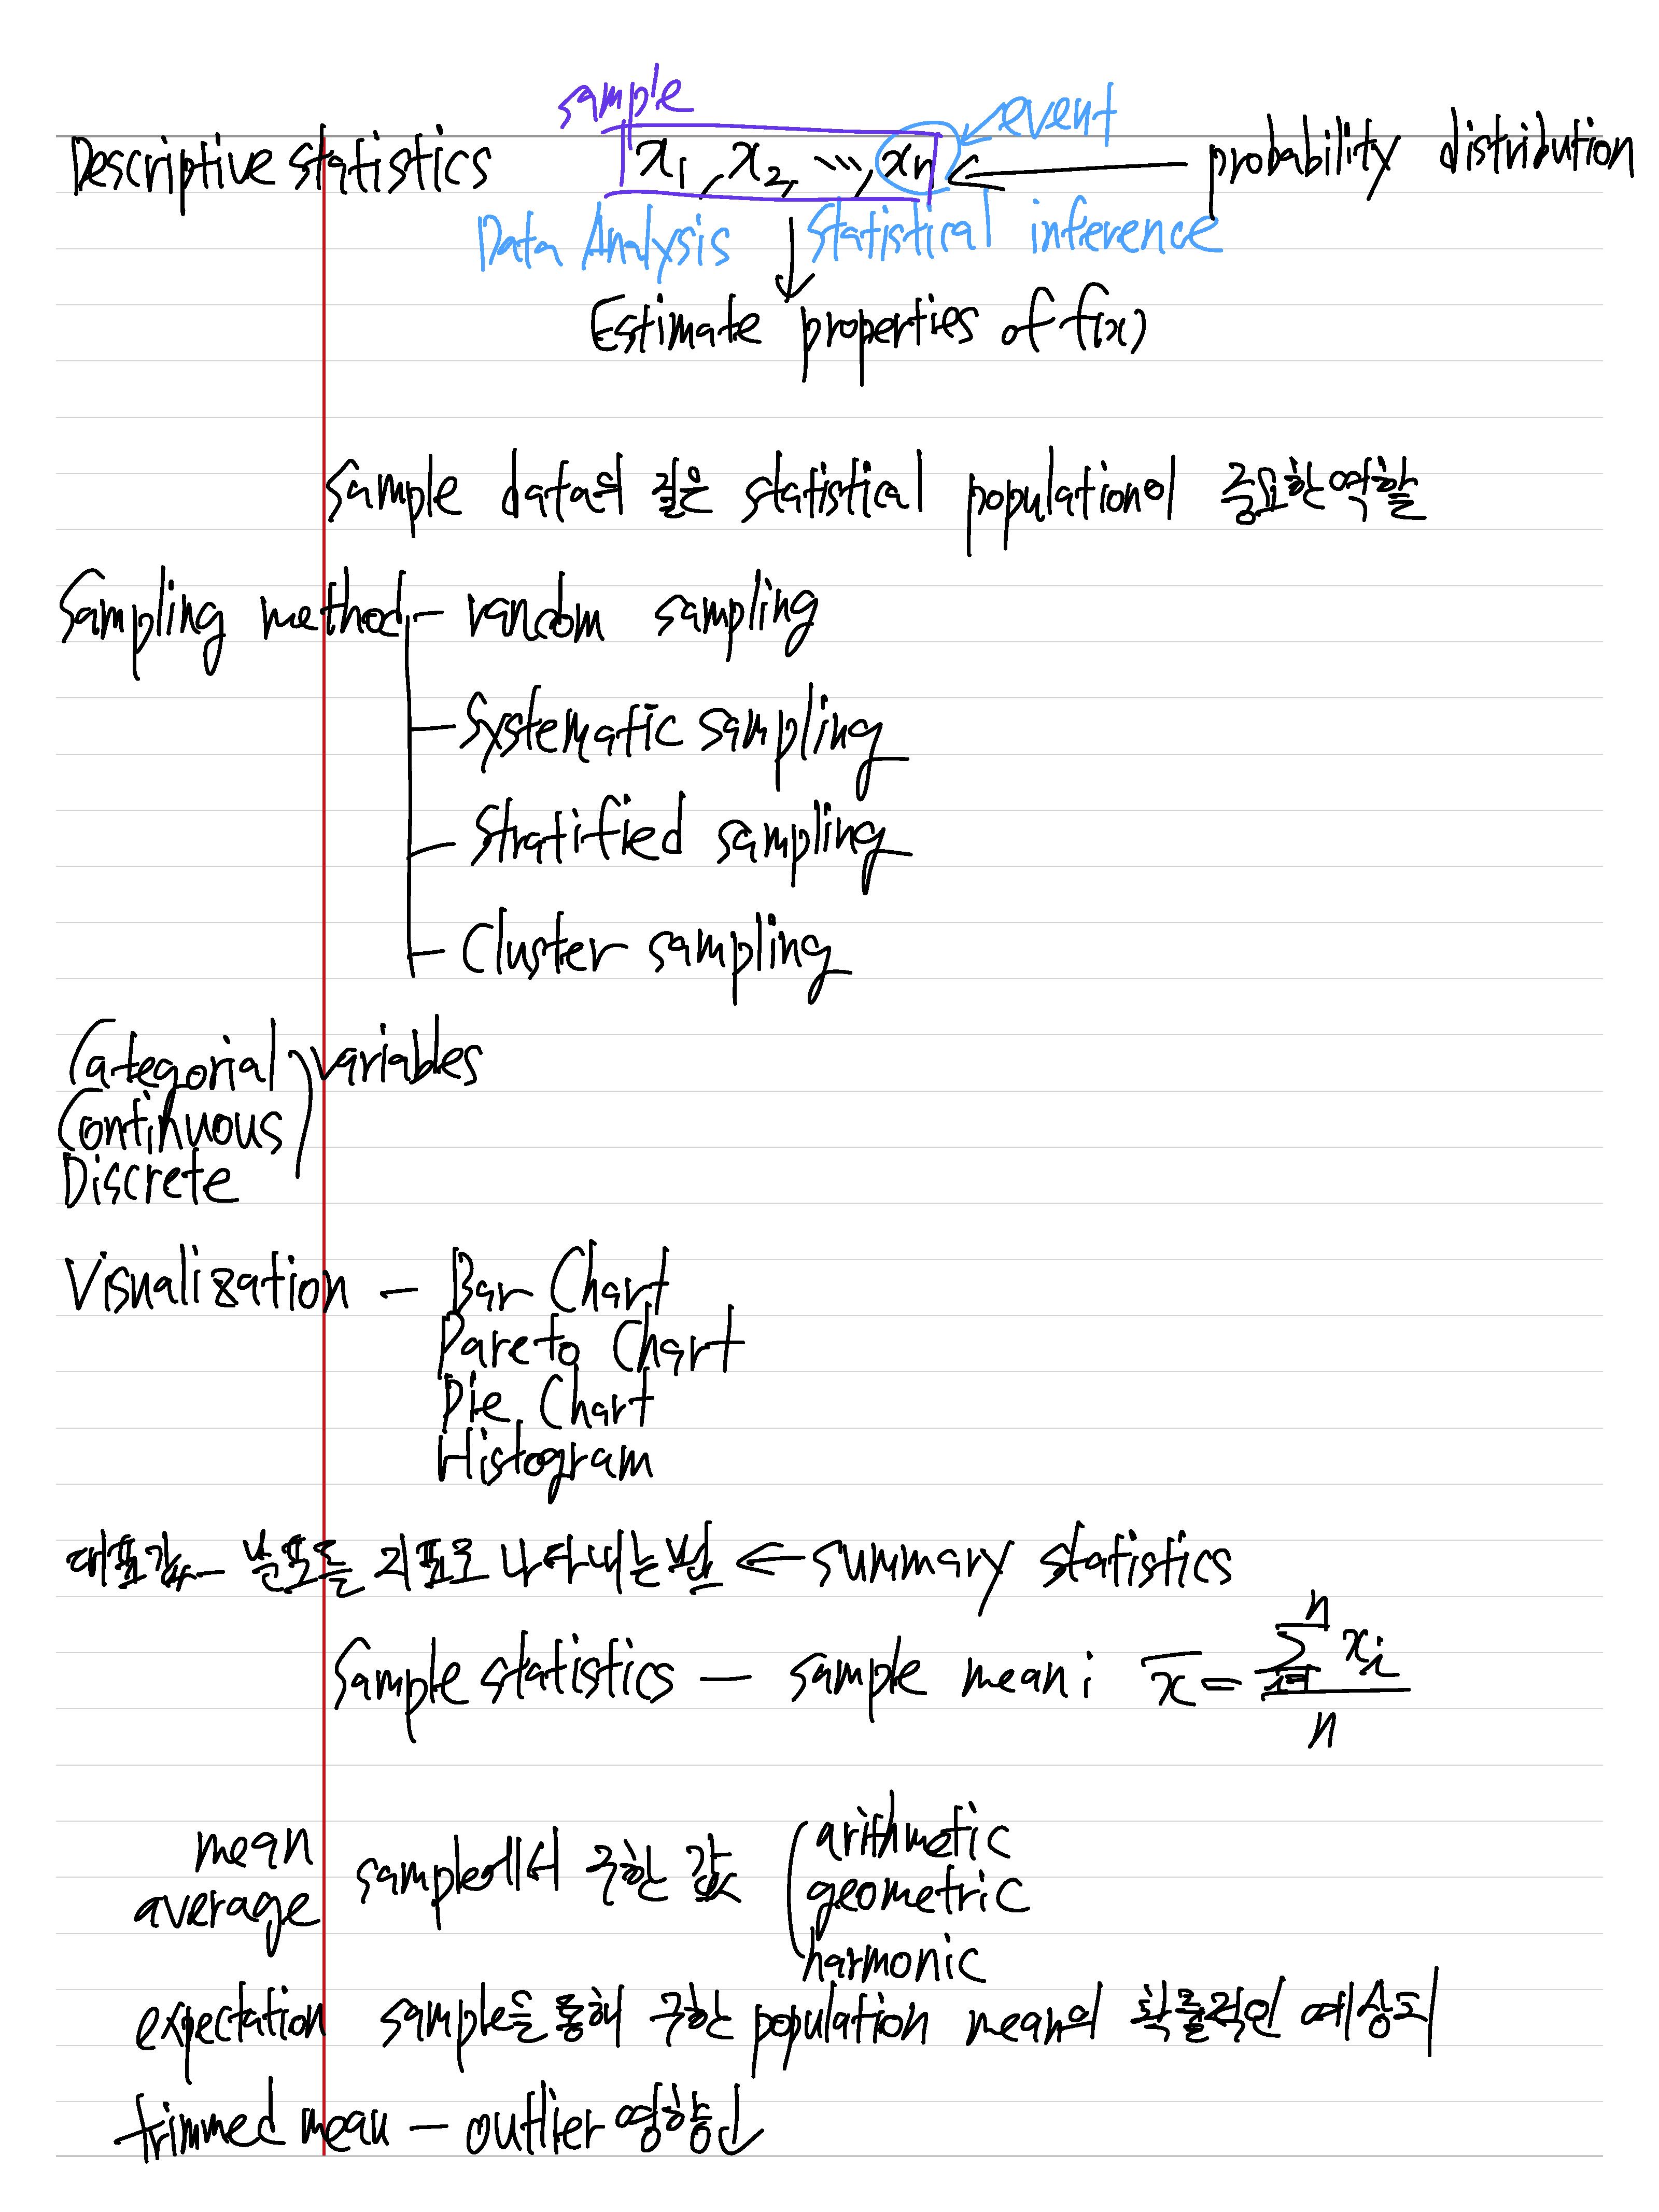 sample
event
Descriptive statistics x₁, x₂, ..., xₙ ← probability distribution
Data Analysis ↓ Statistical inference
Estimate properties of f(x)
Sample data의 질은 statistical population이 중요한 역할
Sampling method - random sampling
- Systematic sampling
- Stratified sampling
- Cluster sampling
Categorial variables
Continuous
Discrete
Visualization - Bar Chart
Pareto Chart
Pie Chart
Histogram
대표값 - 분포를 지표로 나타내는 법 ← summary statistics
Sample statistics - sample mean: x̄ = Σᵢ₌₁ⁿ xᵢ / n
mean
average
sample에서 구한 값
arithmetic
geometric
harmonic
expectation sample을 통해 구한 population mean의 확률적인 예상치
trimmed mean - outlier 영향 ↓